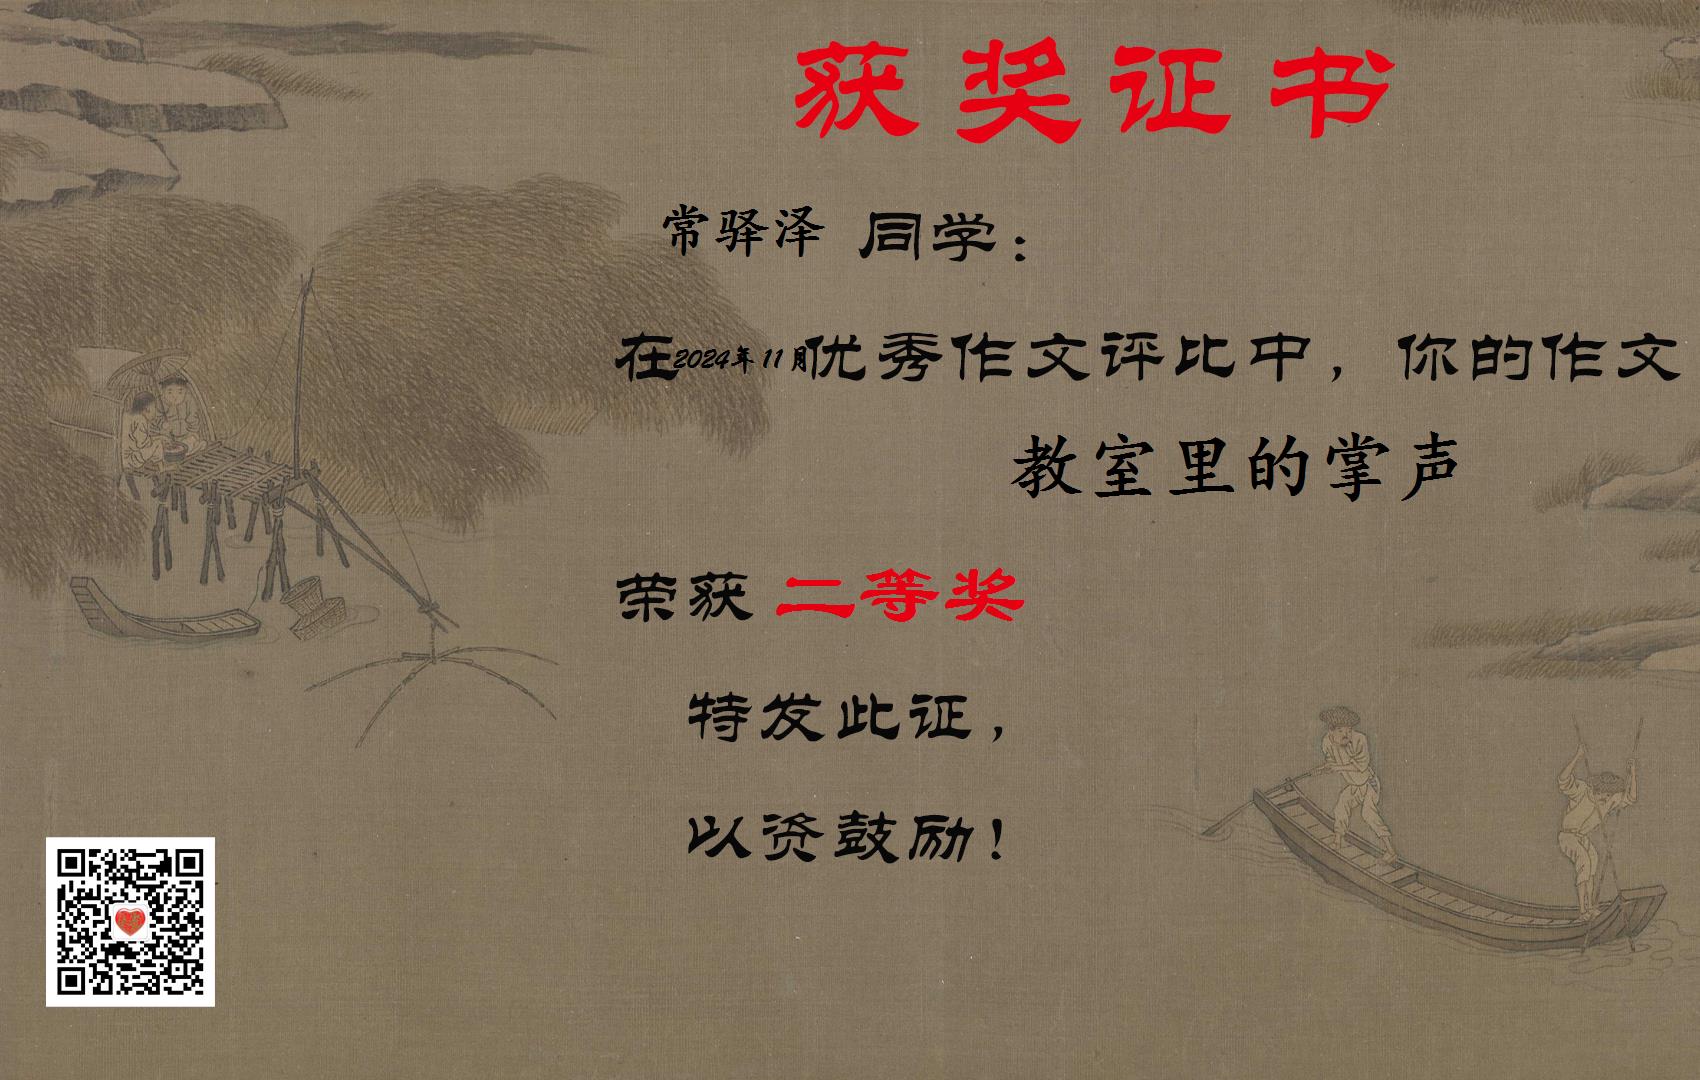 获奖证书
常驿泽 同学：
在2024年11月优秀作文评比中，你的作文
教室里的掌声
荣获 二等奖
特发此证，
以资鼓励！